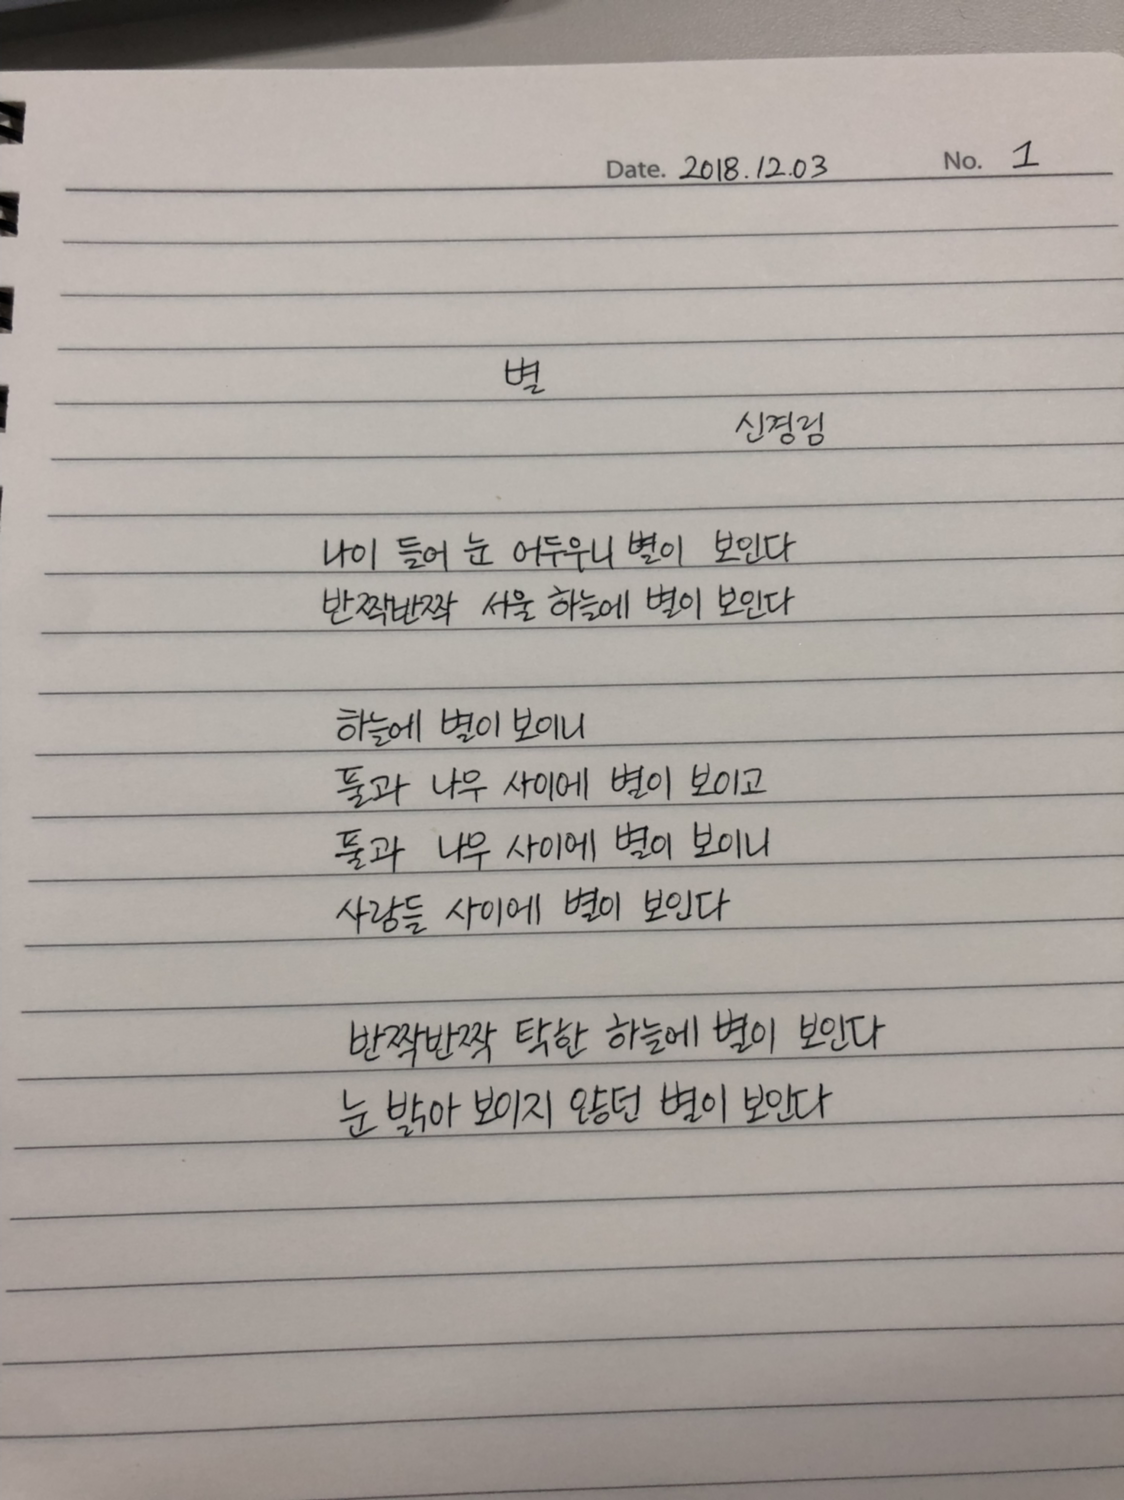 Date. 2018.12.03 No. 1
별
신경림
나이 들어 눈 어두우니 별이 보인다
반짝반짝 서울 하늘에 별이 보인다
하늘에 별이 보이니
풀과 나무 사이에 별이 보이고
풀과 나무 사이에 별이 보이니
사람들 사이에 별이 보인다
반짝반짝 탁한 하늘에 별이 보인다
눈 밝아 보이지 않던 별이 보인다